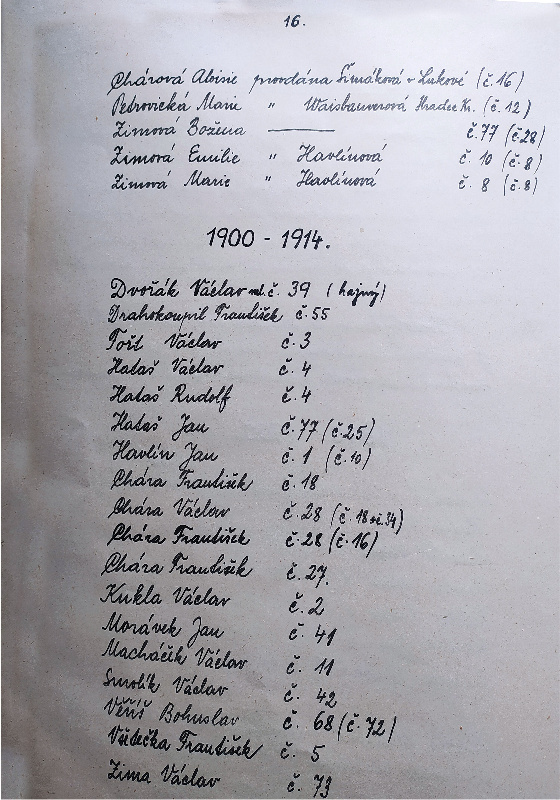 16.
Chárová Aloisie provdána Šimáková v Lukové (č. 16)
Petrovická Marie " Waisbauerová Hradec Kr. (č. 12)
Zimová Božena ——— č. 77 (č. 28)
Zimová Emilie " Havlínová č. 10 (č. 8)
Zimová Marie " Havlínová č. 8 (č. 8)
1900 - 1914.
Dvořák Václav ml. č. 39 (hajný)
Drahokoupil František č. 55
Fořt Václav č. 3
Hataš Václav č. 4
Hataš Rudolf č. 4
Hataš Jan č. 77 (č. 25)
Havlín Jan č. 1 (č. 10)
Chára František č. 18
Chára Václav č. 28 (č. 18 a č. 34)
Chára František č. 28 (č. 16)
Chára František č. 27.
Kukla Václav č. 2
Morávek Jan č. 41
Macháčik Václav č. 11
Smolík Václav č. 42
Věříš Bohuslav č. 68 (č. 72)
Všetečka František č. 5
Zima Václav č. 73